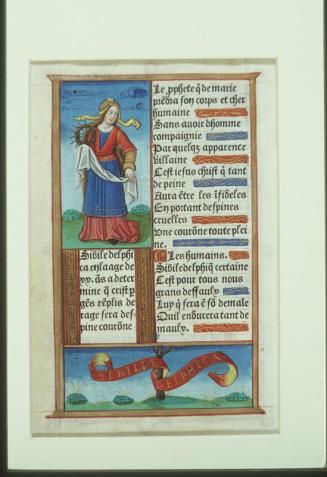 Le pphete q̃ de marie
prẽdra son corps et cher
humaine
Sans auoir dhomme
compaignie
Par quelq3 apparence
villaine
Cest iesus christ q̃ tant
de peine
Aura ẽtre les ĩfideles
En portant despines
cruelles
Vne courõne toute plei
ne.
Les humains.
Sibile delphiq̃ certaine
Cest pour tous nous
grans deffaulx
Luy q̃ sera ẽ sõ demale
Quil endurera tant de
maulx.
Sibile delphi
ca en laage de
xx. ãs a deter
mine q̃ crist p
gẽs rẽplis de
rage sera des
pine courõne
SIBILLE DELPHICA